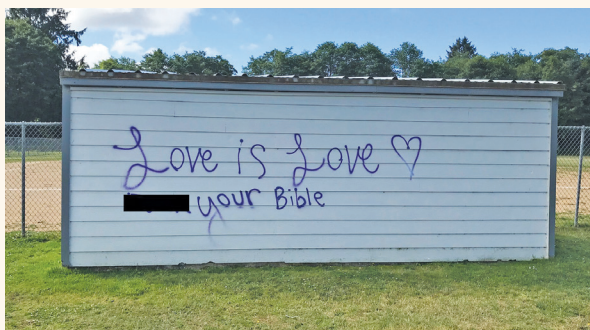 Love is Love ♡
your Bible